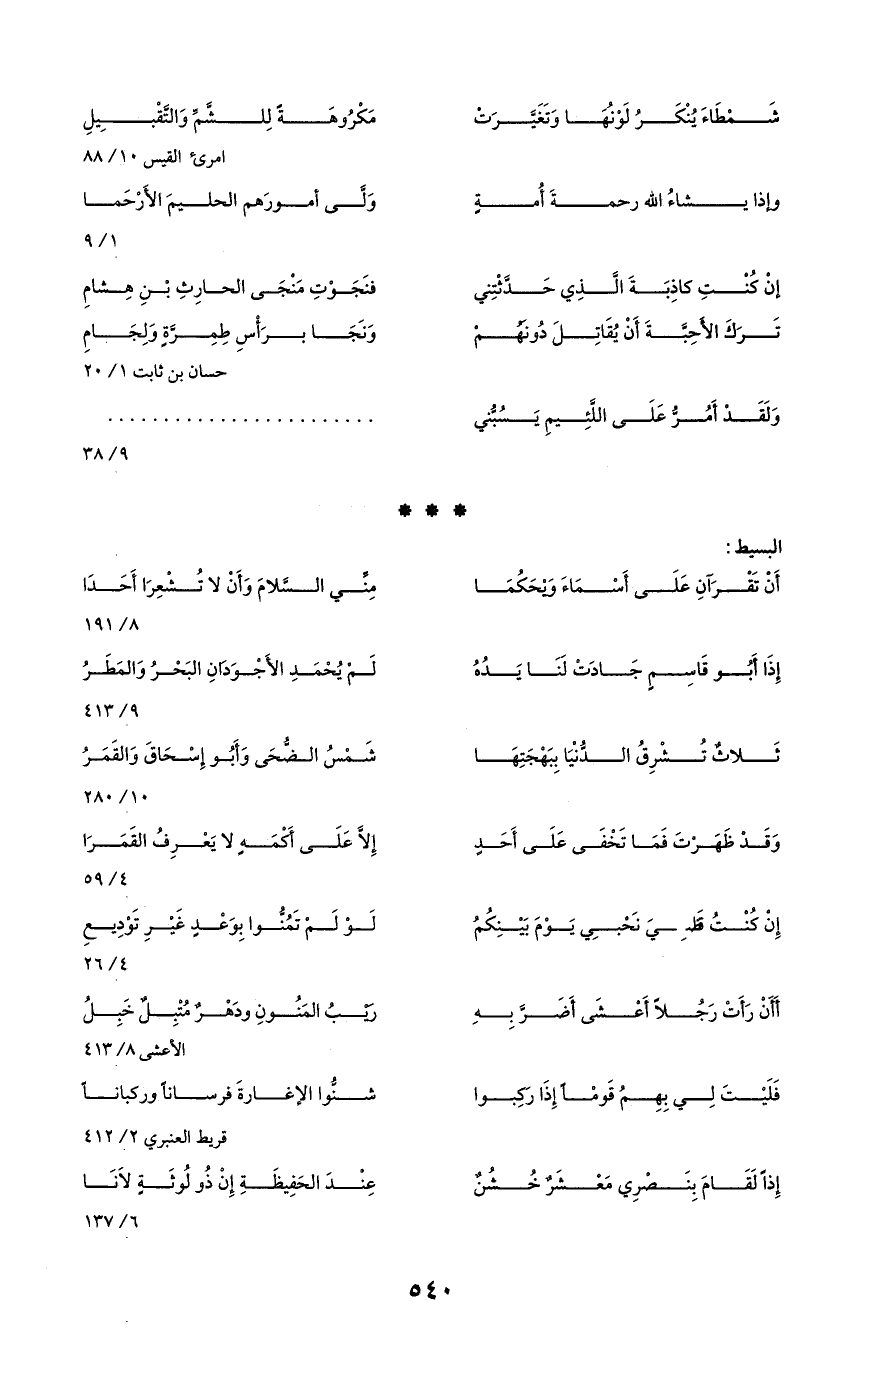 شَمْطَاءَ يُنْكَرُ لَوْنُهَا وَتَغَيَّرَتْ مَكْرُوهَةً لِلشَّمِّ وَالتَّقْبِيلِ
امرئ القيس ١٠/ ٨٨
وإذا يشاءُ الله رحمةَ أُمةٍ وَلَّى أمورَهم الحليمَ الأَرْحَمَا
١/ ٩
إنْ كُنْتِ كاذِبَةَ الَّذِي حَدَّثْتِنِي فنَجَوْتِ مَنْجَى الحارِثِ بْنِ هِشامِ
تَرَكَ الأحِبَّةَ أَنْ يُقَاتِلَ دُونَهُمْ وَنَجَا بِرَأْسِ طِمِرَّةٍ وَلِجَامِ
حسان بن ثابت ١/ ٢٠
وَلَقَدْ أَمُرُّ عَلَى اللَّئِيمِ يَسُبُّنِي . . . . . . . . . . . . . . . . . . . . . .
٩/ ٣٨
* * *
البسيط:
أَنْ تَقْرَآنِ عَلَى أَسْمَاءَ وَيْحَكُمَا مِنِّي السَّلامَ وَأَنْ لا تُشْعِرَا أَحَدَا
٨/ ١٩١
إذَا أَبُو قَاسِمٍ جَادَتْ لَنَا يَدُهُ لَمْ يُحْمَدِ الأَجْوَدَانِ البَحْرُ وَالمَطَرُ
٩/ ٤١٣
ثَلاثٌ تُشْرِقُ الدُّنْيَا بِبَهْجَتِهَا شَمْسُ الضُّحَى وَأَبُو إِسْحَاقَ وَالقَمَرُ
١٠/ ٢٨٠
وَقَدْ ظَهَرْتَ فَمَا تَخْفَى عَلَى أَحَدٍ إلاَّ عَلَى أَكْمَهٍ لا يَعْرِفُ القَمَرَا
٤/ ٥٩
إنْ كُنْتُ قَدْ نَحْبِي يَوْمَ بَيْنِكُمُ لَوْ لَمْ تَمُنُّوا بِوَعْدٍ غَيْرِ تَوْدِيعِ
٤/ ٢٦
أَأَنْ رَأَتْ رَجُلاً أَعْشَى أَضَرَّ بِهِ رَيْبُ المَنُونِ ودَهْرٌ مُتْبِلٌ خَبِلُ
الأعشى ٨/ ٤١٣
فَلَيْتَ لِي بِهِمُ قَوْمًا إذَا رَكِبُوا شنُّوا الإغارةَ فرساناً وركباناً
قريط العنبري ٢/ ٤١٢
إذاً لَقَامَ بِنَصْرِي مَعْشَرٌ خُشُنٌ عِنْدَ الحَفِيظَةِ إنْ ذُو لُوثَةٍ لاَنَا
٦/ ١٣٧
٥٤٠